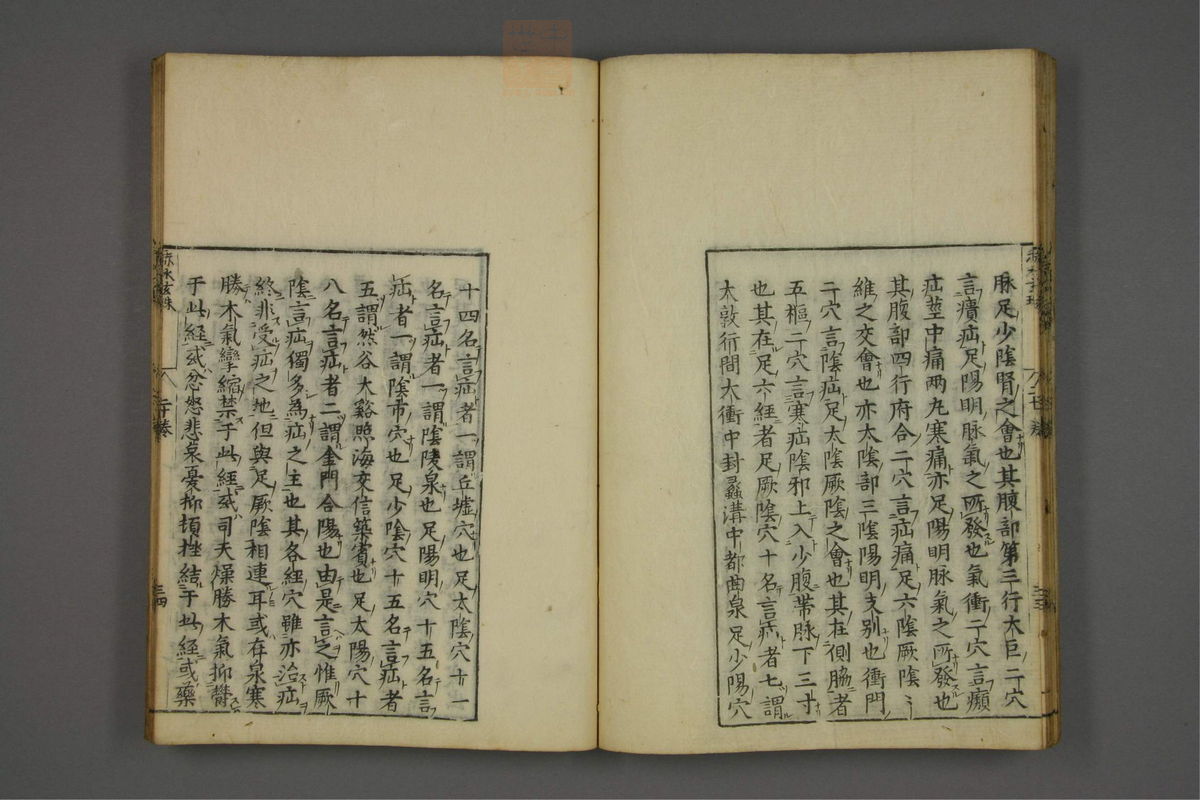 脉足少陰腎之會也其腹部第三行大巨二穴
言㿉疝足陽明脉氣之所發也氣衝二穴言癲
疝莖中痛两丸寒痛亦足陽明脉氣之所發也
其腹部四行府合二穴言疝痛足六陰厥陰
維之交會也亦太陰部三陰陽明支别也衝門
二穴言陰疝足太陰厥陰之會也其在側脇者
五樞二穴言寒疝陰邪上入少腹帶脉下三寸
也其在足六經者足厥陰穴十名言疝者七謂
太敦行間太衝中封蠡溝中都曲泉足少陽穴
十四名言疝者一謂丘墟穴也足太陰穴十一
名言疝者一謂陰陵泉也足陽明穴十五名言
疝者一謂陰市穴也足少陰穴十五名言疝者
五謂然谷大谿照海交信築賓也足太陽穴十
八名言疝者二謂金門合陽也由是言之惟厥
陰言疝獨多為疝之主也其各經穴雖亦治疝
終非受疝之地但與足厥陰相連耳或在泉寒
勝木氣攣縮禁于此經或司天燥勝木氣抑鬱
于此經或忿怒悲哀憂抑頓挫結于此經或藥
二十卷
三四